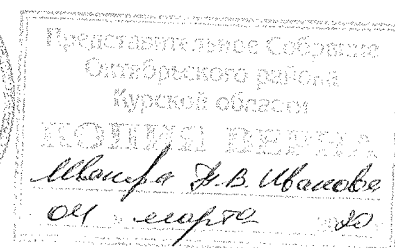 Представительное Собрание
Октябрьского района
Курской области
КОПИЯ ВЕРНА
Н.В. Иванова
04 марта 20